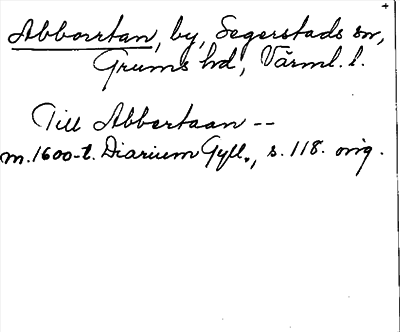 Abborrtan, by, Segerstads sn,
Grums hd, Värml. l.
Till Abbertaan --
m. 1600-t. Diarium Gyll., s. 118. orig.